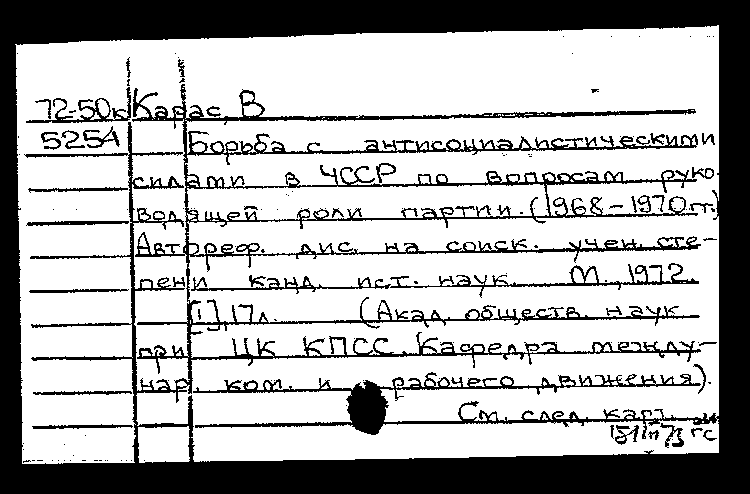 72-50к Карас, В
5254 Борьба с антисоциалистическими
силами в ЧССР по вопросам руко-
водящей роли партии. (1968-1970гг.)
Автореф. дис. на соиск. учен. сте-
пени канд. ист. наук. М., 1972.
[1], 17л. (Акад. обществ. наук
при ЦК КПСС. Кафедра между-
нар. ком. и рабочего движения).
См. след. карт.